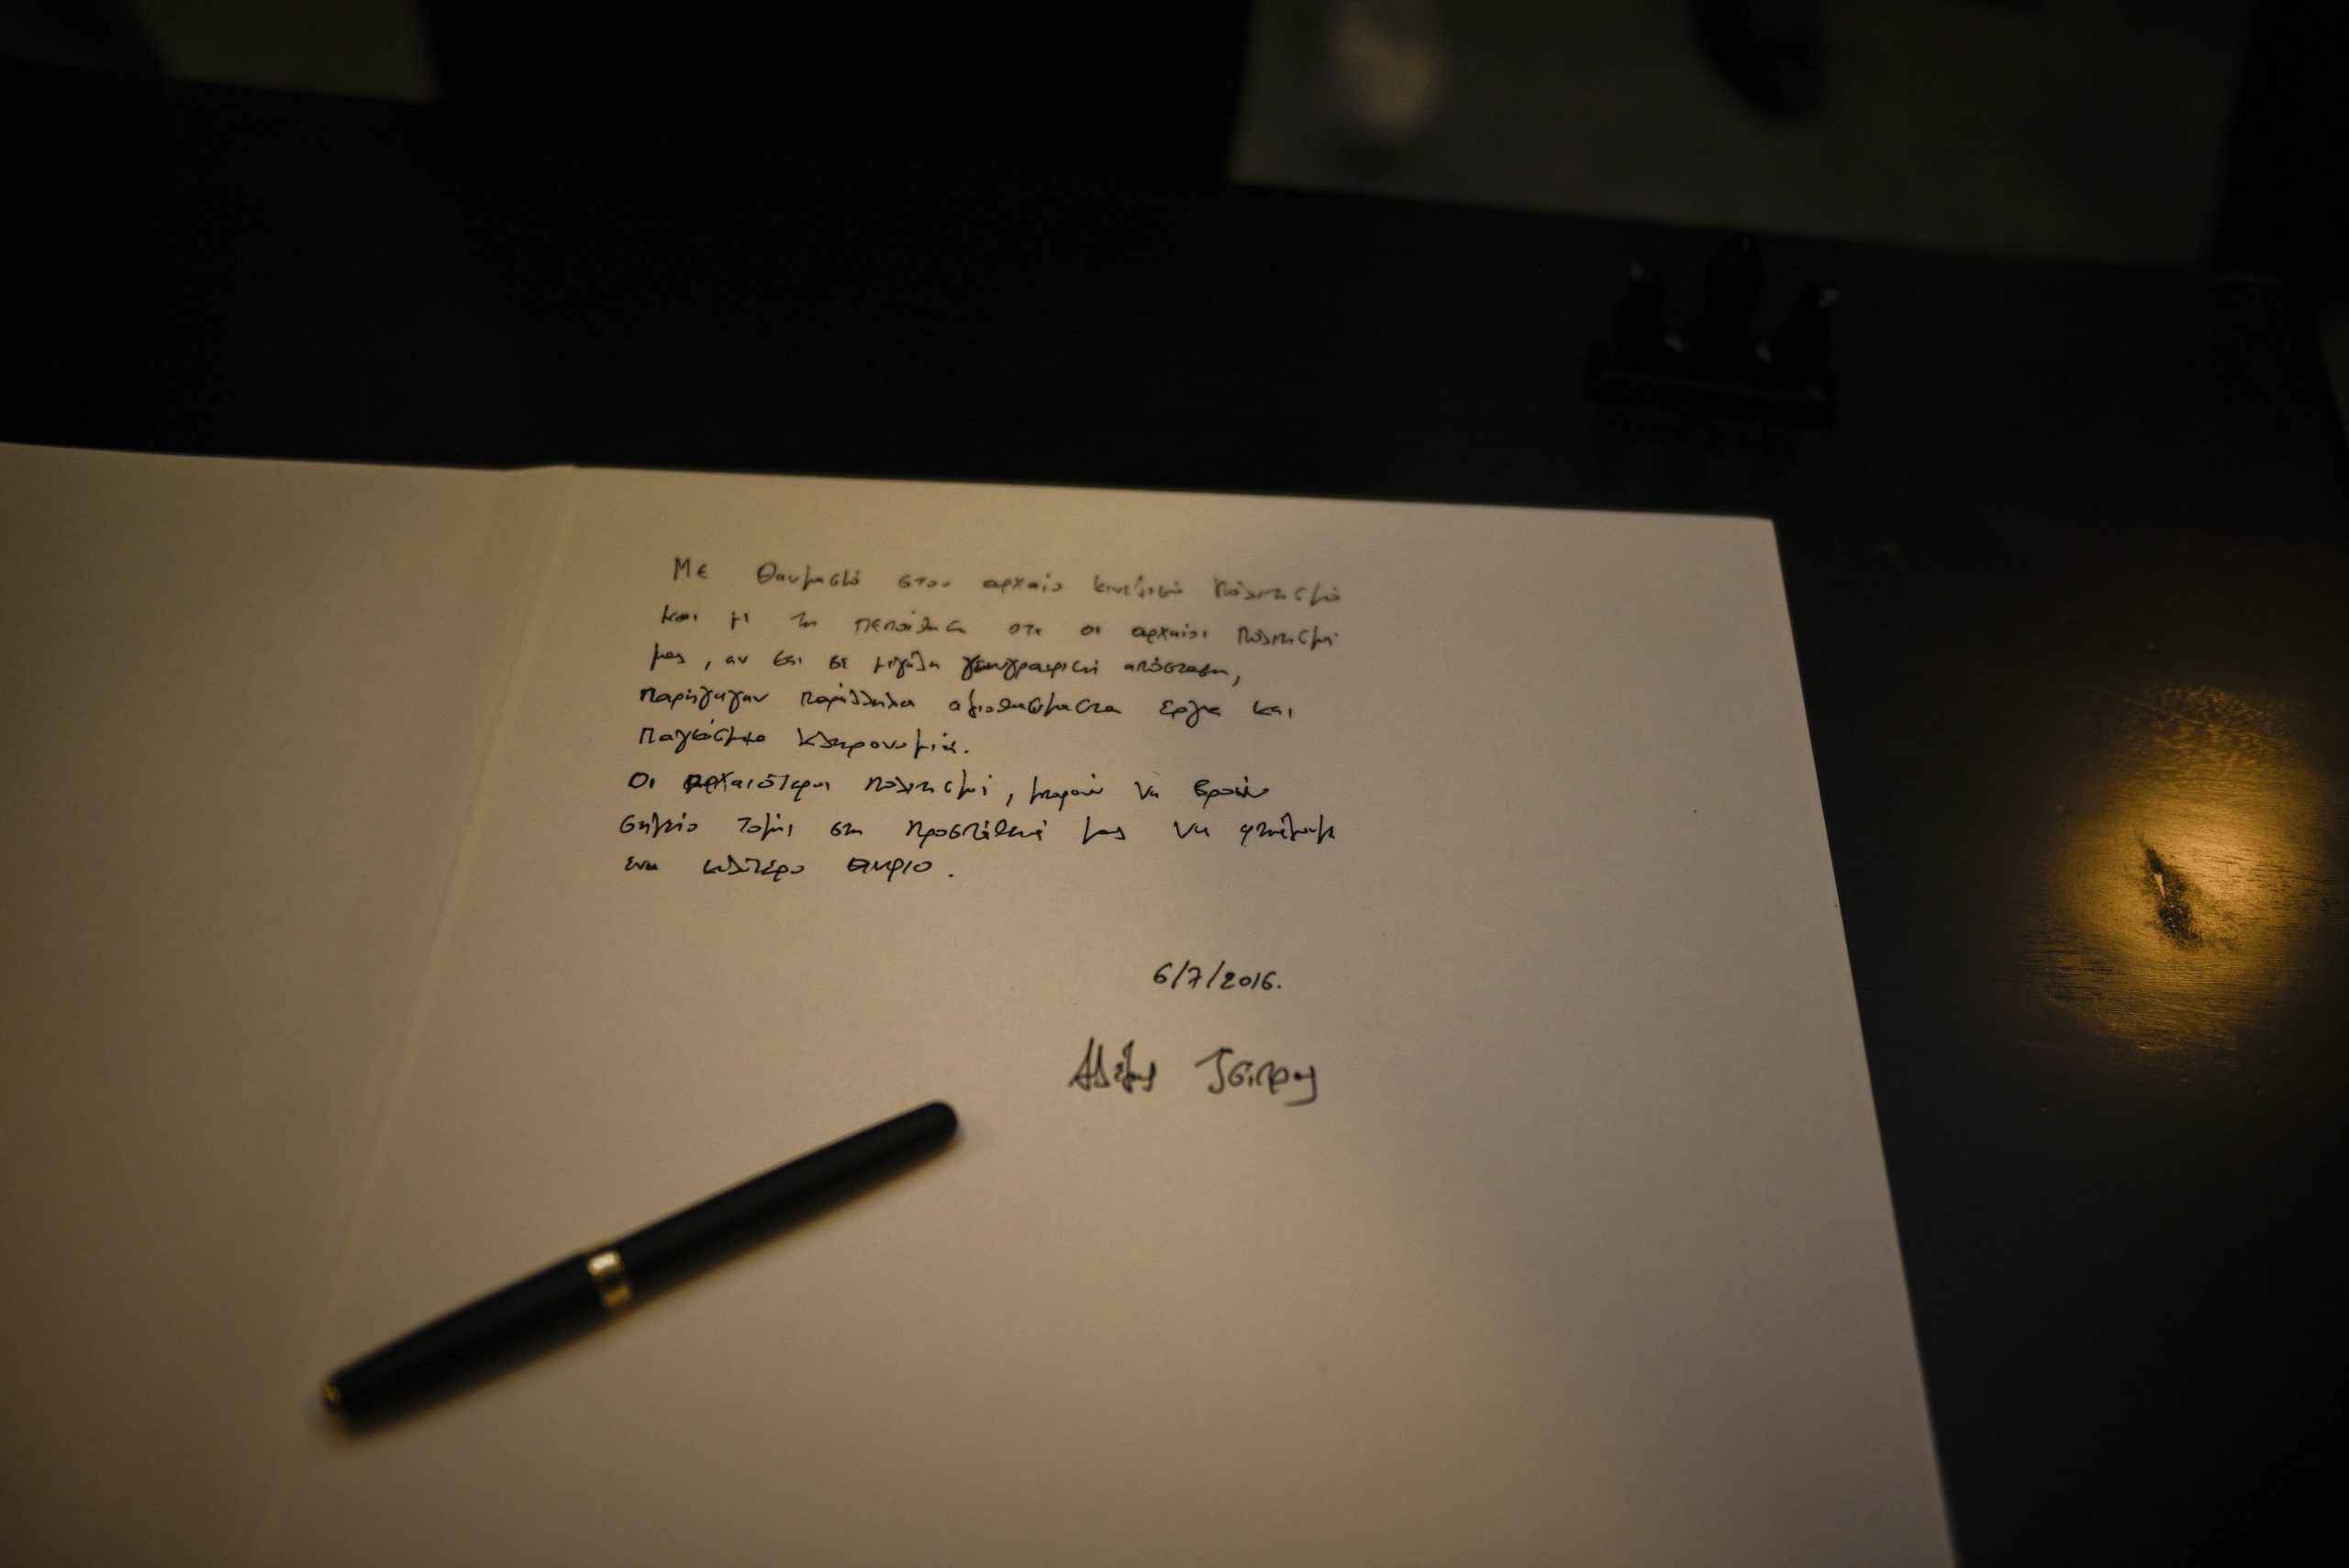 Με θαυμασμό στον αρχαίο κινεζικό πολιτισμό
και με τη πεποίθηση οτι οι αρχαίοι πολιτισμοί
μας, αν και σε μεγάλη γεωγραφική απόσταση,
παρήγαγαν παράλληλα αξιοθαύμαστα έργα και
παγκόσμια κληρονομιά.
Οι αρχαιότεροι πολιτισμοί, μπορούν να βρουν
σημείο τομής στη προσπάθειά μας να φτιάξουμε
ένα καλύτερο αύριο.
6/7/2016.
Αλέξης Τσίπρας